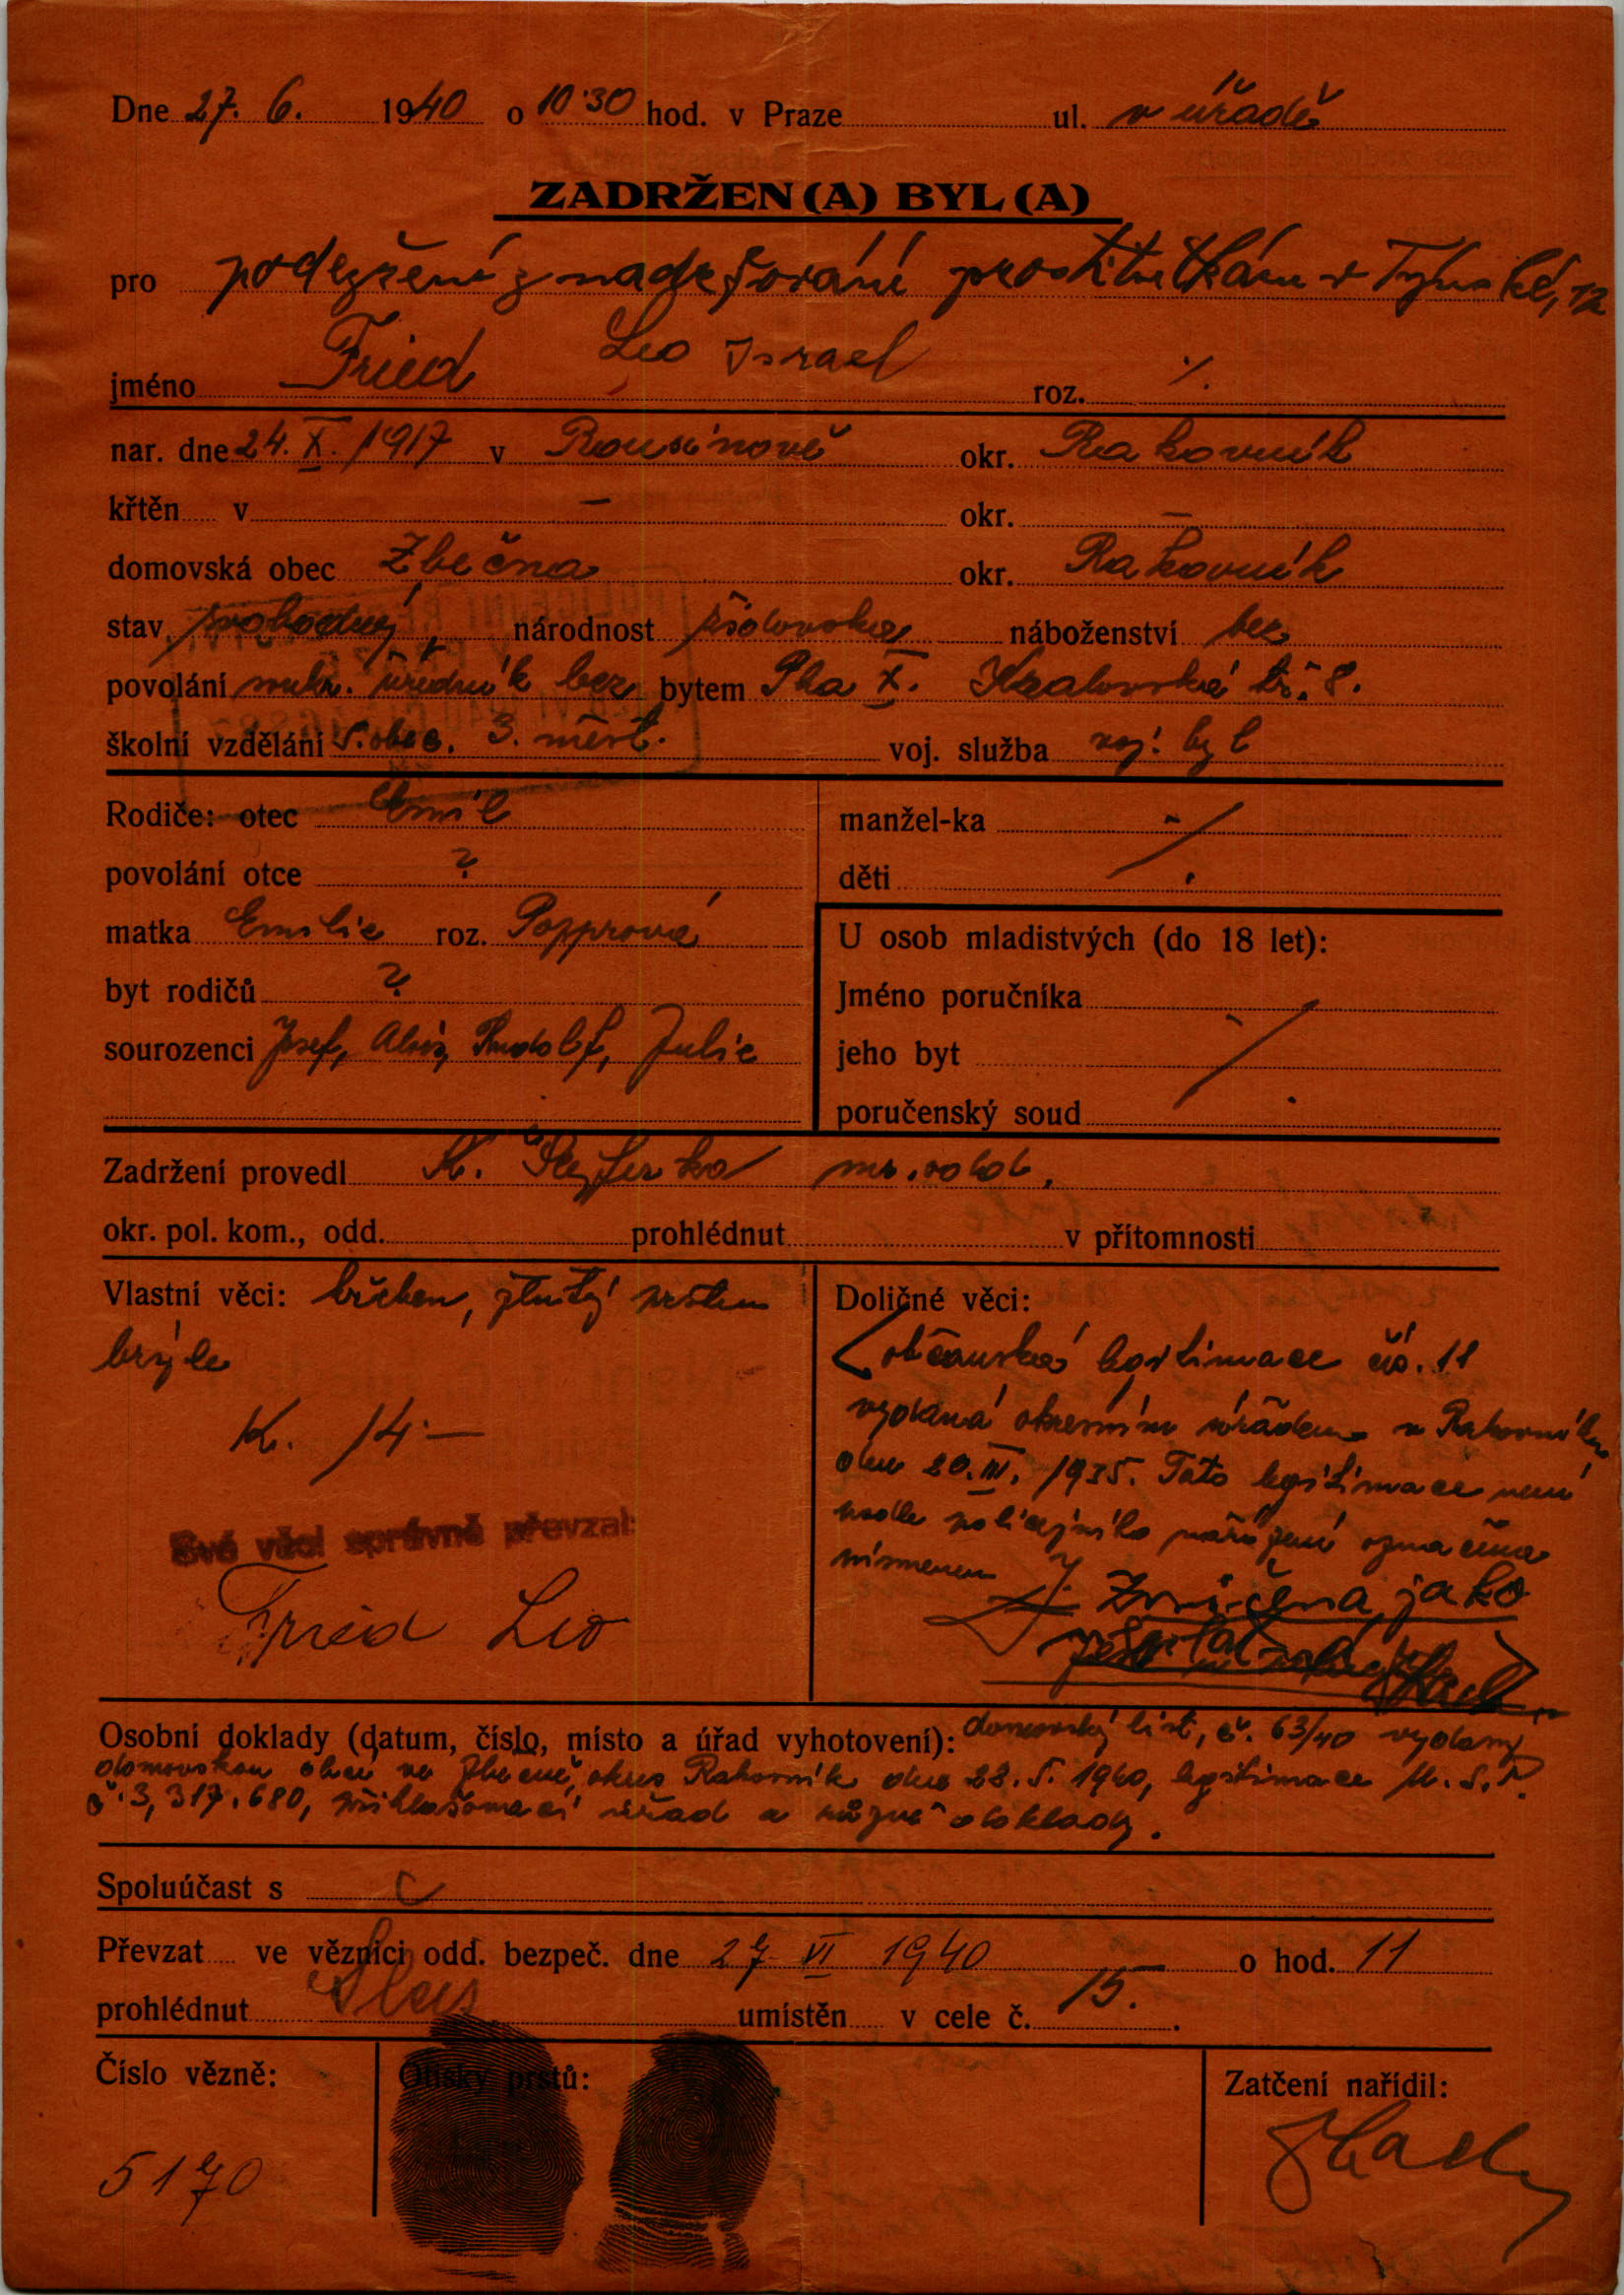 Dne 27. 6. 1940 o 10·30 hod. v Praze ul. v úřadě
ZADRŽEN(A) BYL(A)
pro podezření z nadržování prostitutkám v Týnské, 12
jméno Fried Leo Israel roz. ⁒
nar. dne 24. X. 1917 v Rousínově okr. Rakovník
křtěn v — okr. —
domovská obec Zbečna okr. Rakovník
stav svobodný národnost židovská náboženství bez
povolání soukr. úředník bez bytem Pha X. Královská tř. 8.
školní vzdělání 5. obec. 3. měšť. voj. služba voj. byl
Rodiče: otec Emil
manžel-ka
povolání otce ?
děti
matka Emilie roz. Popprová
U osob mladistvých (do 18 let):
byt rodičů ?
Jméno poručníka
sourozenci Josef, Alois, Rudolf, Julie
jeho byt
poručenský soud
Zadržení provedl K.
okr. pol. kom., odd. prohlédnut v přítomnosti
Vlastní věci: kužken, žlutý prsten
brýle
K. 14·—
Své věci správně převzal:
Fried Leo
Doličné věci:
občanská legitimace čís. 11
vydaná okresním úřadem v Rakovníku
dne 20. III. 1935. Tato legitimace není
podle policejního nařízení označena
písmenem J. Zničena jako
Osobní doklady (datum, číslo, místo a úřad vyhotovení): domovský list, č. 63/40 vydaný
domovskou obcí ve Zbečně, okres Rakovník dne 28. 5. 1940, legitimace
č. 3,317.680, přihlašovací úřad a různé doklady.
Spoluúčast s
Převzat ve věznici odd. bezpeč. dne 27 VI 1940 o hod. 11
prohlédnut umístěn v cele č. 15.
Číslo vězně:
5170
Otisky prstů:
Zatčení nařídil: